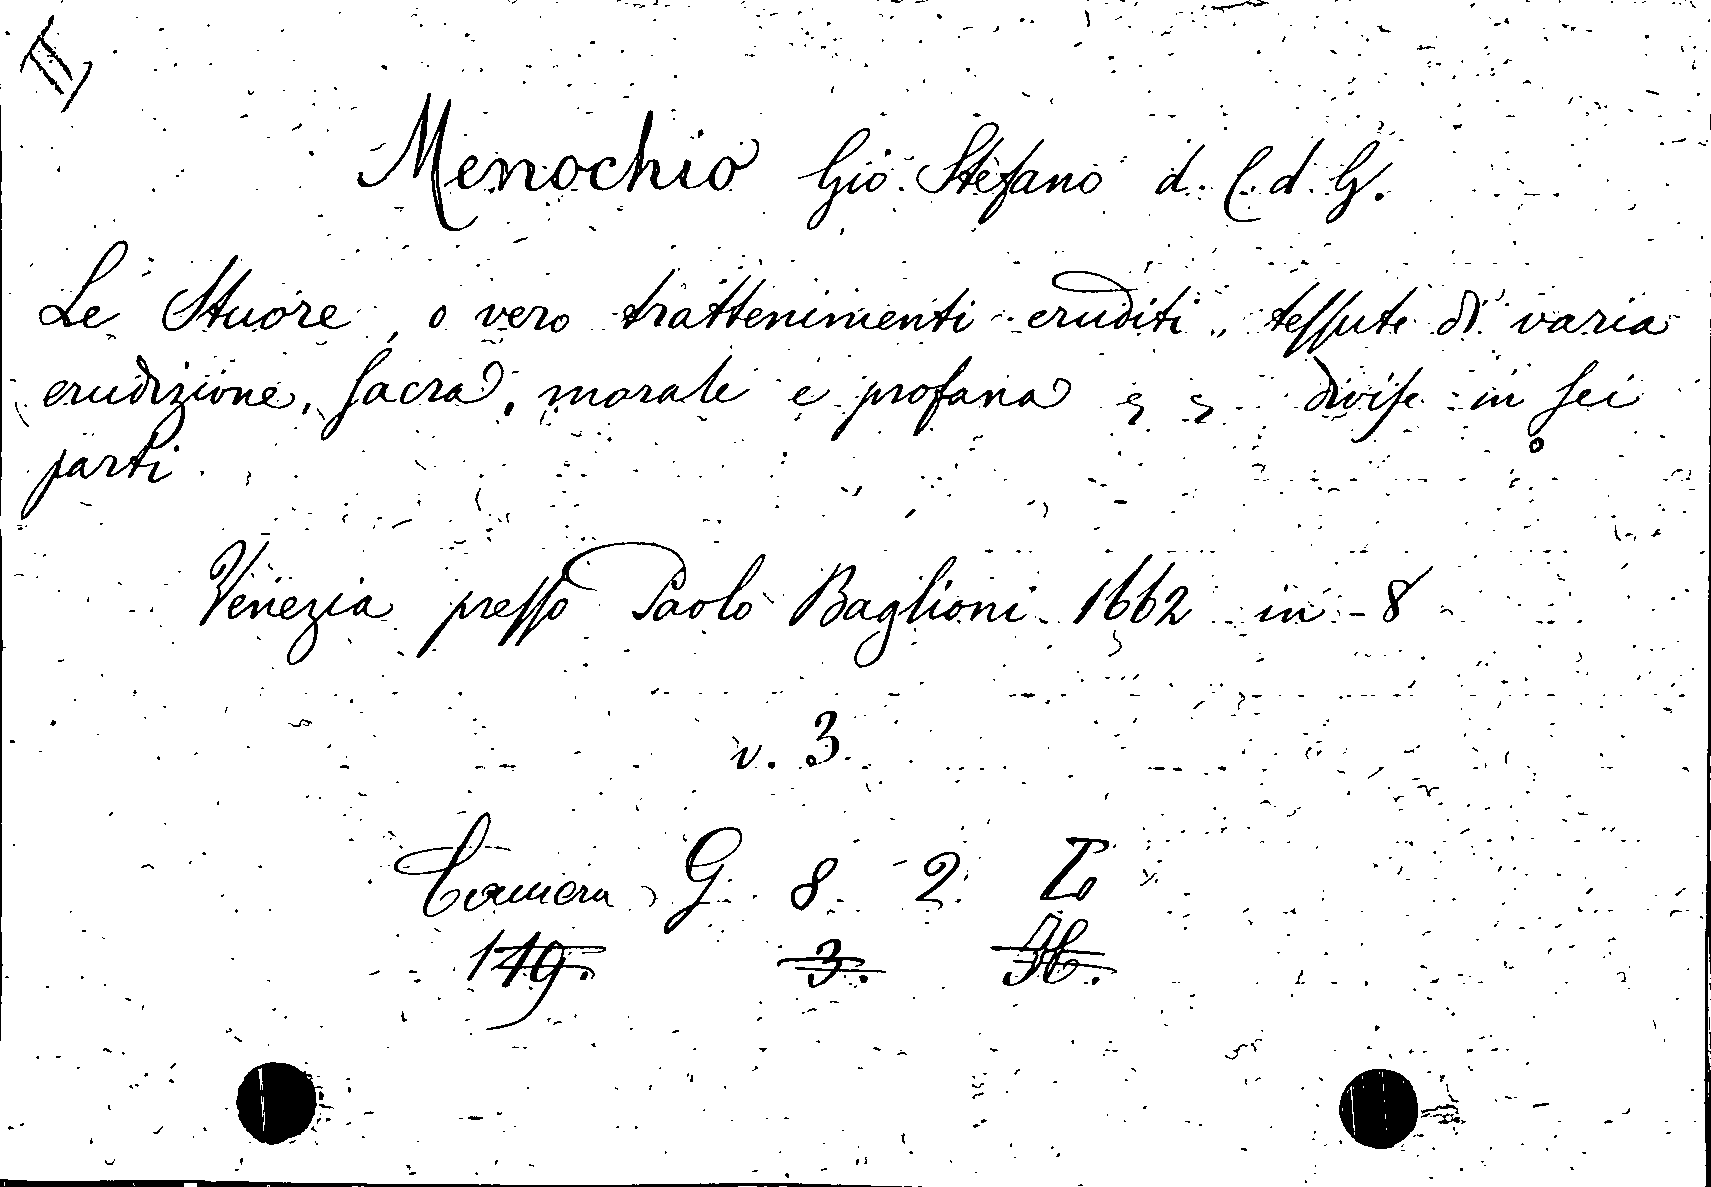 II
Menochio Gio. Stefano d. C. d. G.
Le Stuore, o vero trattenimenti eruditi, teſſute di varia
erudizione, ſacra, morale e profana divise in ſei
parti.
Venezia preſſo Paolo Baglioni 1662 in-8
v. 3.
Camera G. 8. 2.
149. 3.